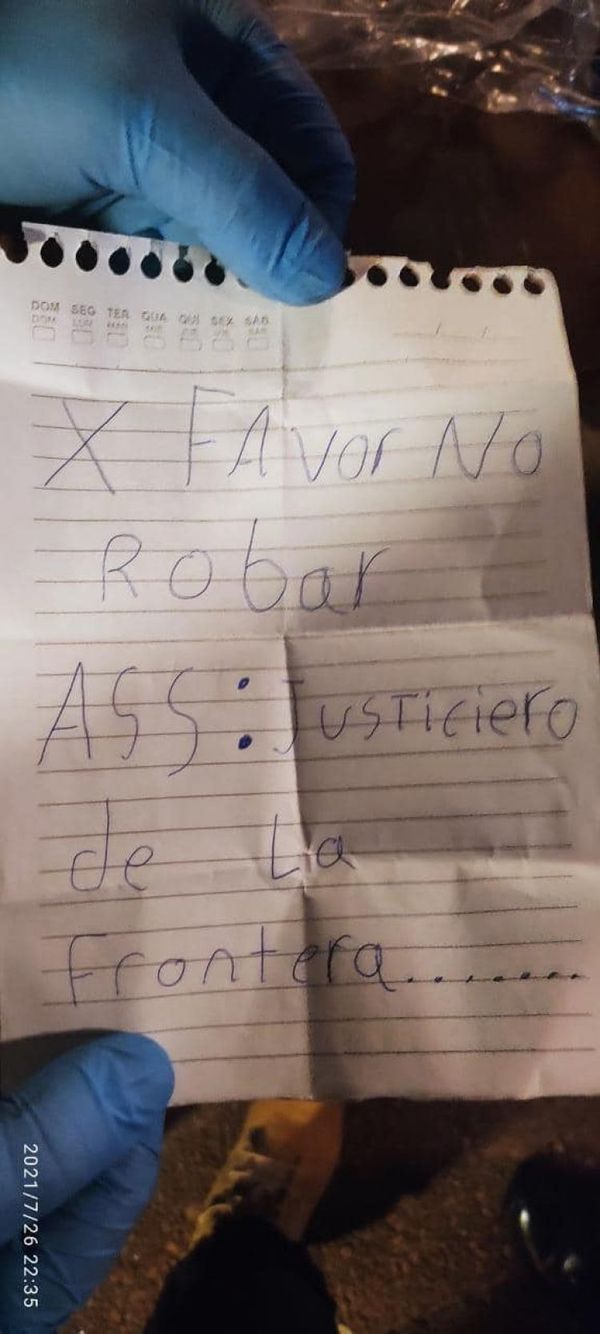 DOM SEG TER QUA QUI SEX SAB
DOM LUN MAR MIE JUE VIE SAB
/ /
X FAvor No
Robar
ASS: Justiciero
de La
Frontera........
2021/7/26 22:35